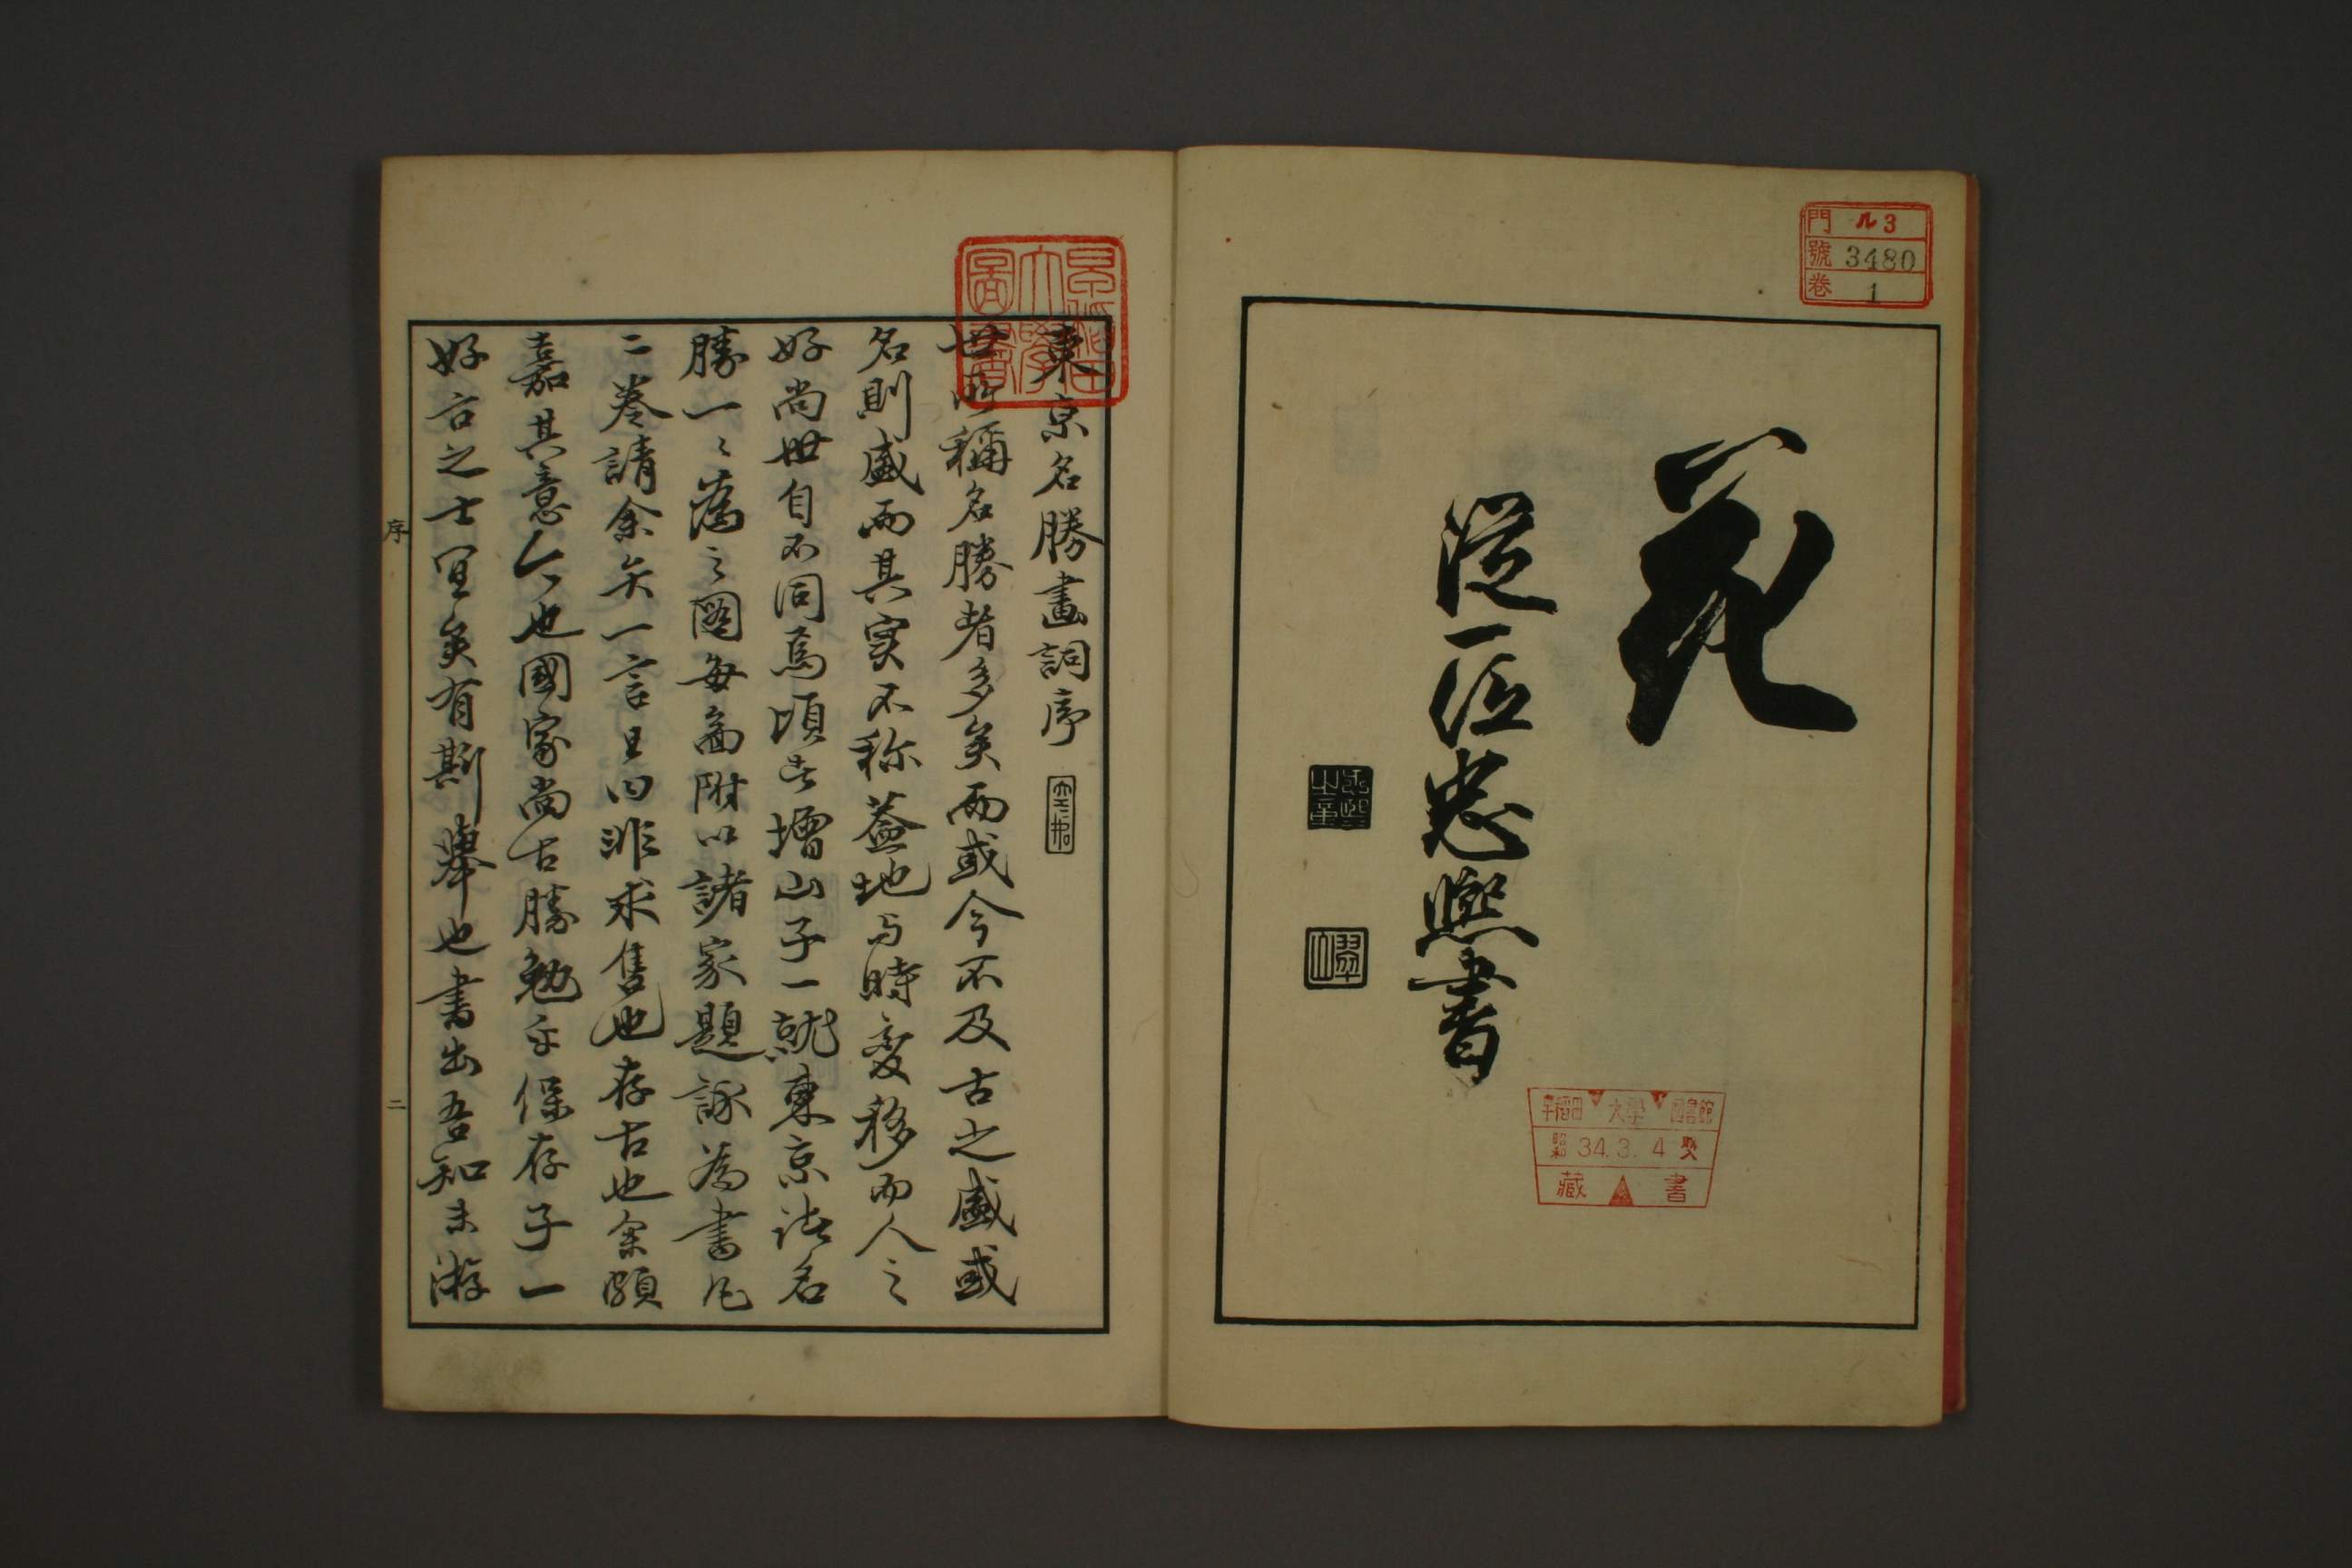 門 ル3
號 3480
卷 1
花
從一位忠熈書
早稲田大學圖書館
昭和 34.3.4 受
藏書
早稲田大學圖書
東京名勝畫詞序
世所稱名勝者多矣而或今不及古之盛或
名則盛而其実不称蓋地与時変移而人之
好尚世自不同焉頃者増山子一就東京諸名
勝一〻為之圖毎畵附以諸家題詠為書凡
二巻請余弁一言且曰非求售也存古也余頗
嘉其意今也國家尚古勝勉乎保存子一
好古之士宜矣有斯舉也書出吾知未游
序
二